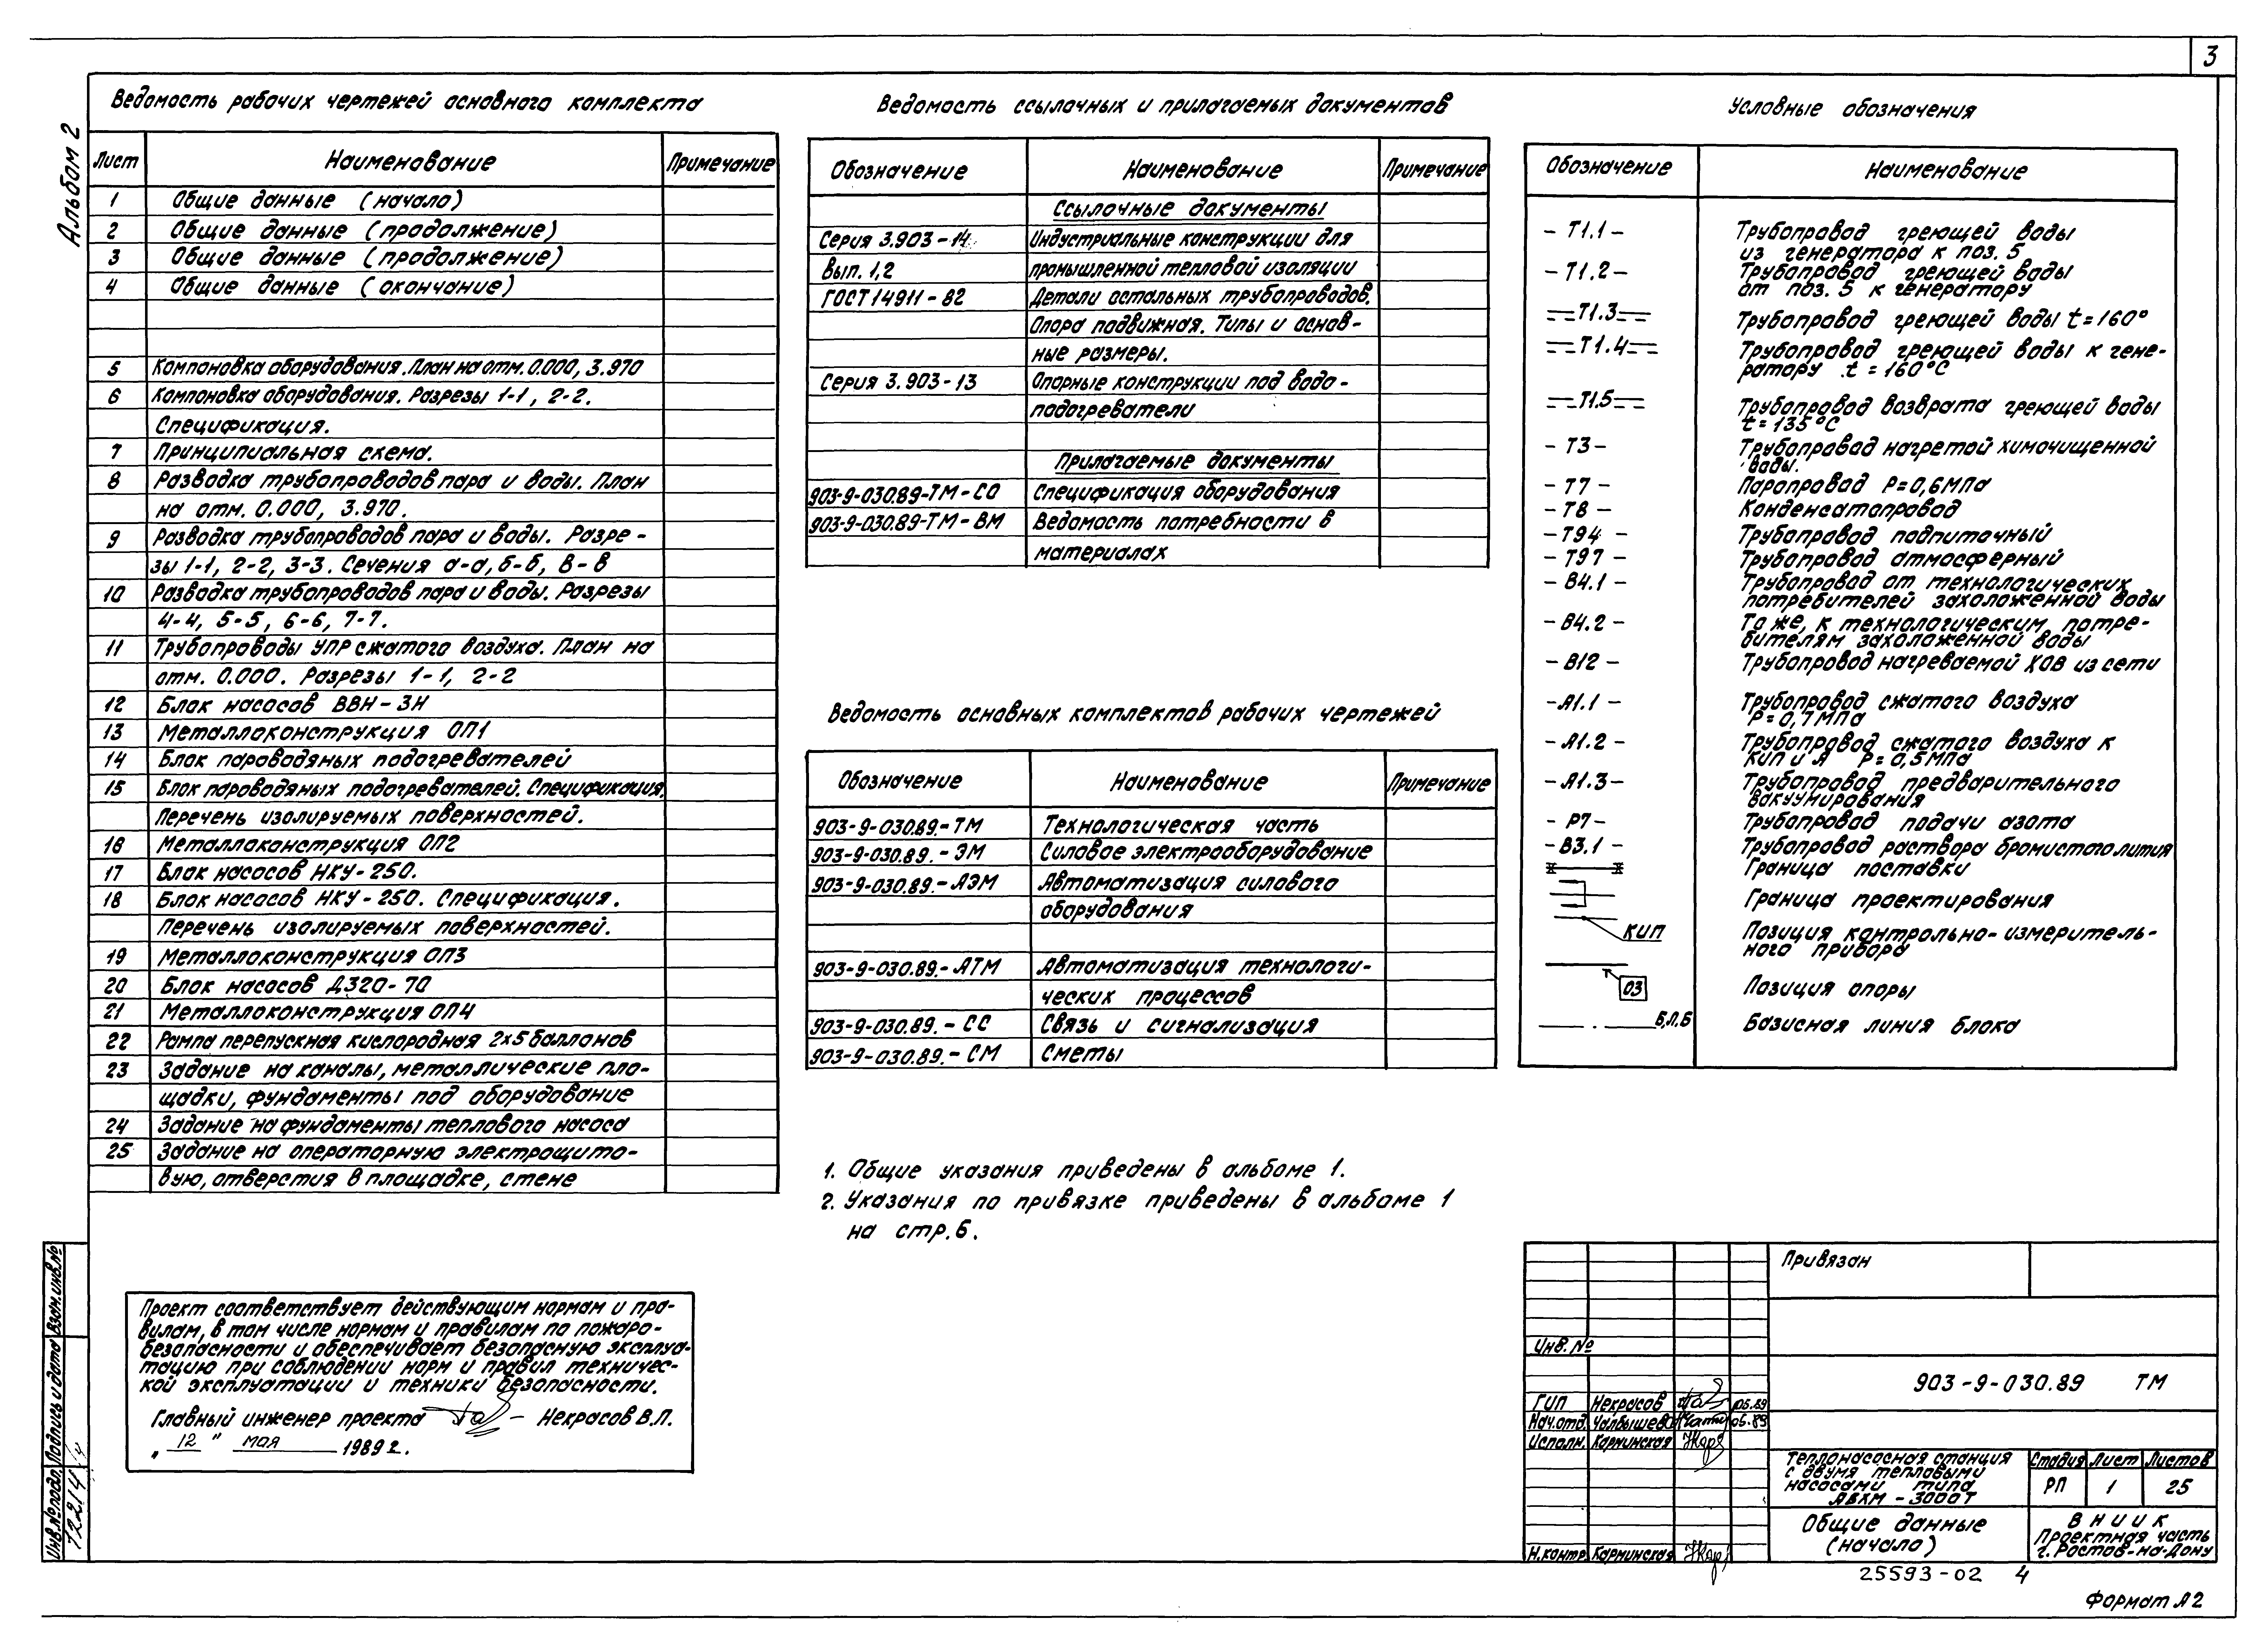 3
Альбом 2
Ведомость рабочих чертежей основного комплекта
Лист Наименование Примечание
1 Общие данные (начало)
2 Общие данные (продолжение)
3 Общие данные (продолжение)
4 Общие данные (окончание)
5 Компоновка оборудования. План на отм. 0.000, 3.970
6 Компоновка оборудования. Разрезы 1-1, 2-2.
Спецификация.
7 Принципиальная схема.
8 Разводка трубопроводов пара и воды. План
на отм. 0.000, 3.970.
9 Разводка трубопроводов пара и воды. Разре-
зы 1-1, 2-2, 3-3. Сечения а-а, б-б, в-в
10 Разводка трубопроводов пара и воды. Разрезы
4-4, 5-5, 6-6, 7-7.
11 Трубопроводы УПР сжатого воздуха. План на
отм. 0.000. Разрезы 1-1, 2-2
12 Блок насосов ВВН-3Н
13 Металлоконструкция ОП1
14 Блок пароводяных подогревателей
15 Блок пароводяных подогревателей. Спецификация.
Перечень изолируемых поверхностей.
16 Металлоконструкция ОП2
17 Блок насосов НКУ-250.
18 Блок насосов НКУ-250. Спецификация.
Перечень изолируемых поверхностей.
19 Металлоконструкция ОП3
20 Блок насосов Д320-70
21 Металлоконструкция ОП4
22 Рампа перепускная кислородная 2х5 баллонов
23 Задание на каналы, металлические пло-
щадки, фундаменты под оборудование
24 Задание на фундаменты теплового насоса
25 Задание на операторную электрощито-
вую, отверстия в площадке, стене
Проект соответствует действующим нормам и пра-
вилам, в том числе нормам и правилам по пожаро-
безопасности и обеспечивает безопасную эксплуа-
тацию при соблюдении норм и правил техничес-
кой эксплуатации и техники безопасности.
Главный инженер проекта Некрасов В.П.
„ 12 " мая 1989 г.
Ведомость ссылочных и прилагаемых документов
Обозначение Наименование Примечание
Ссылочные документы
Серия 3.903-14 Индустриальные конструкции для
Вып. 1,2 промышленной тепловой изоляции
ГОСТ 14911-82 Детали остальных трубопроводов.
Опора подвижная. Типы и основ-
ные размеры.
Серия 3.903-13 Опорные конструкции под водо-
подогреватели
Прилагаемые документы
903-9-030.89-ТМ-СО Спецификация оборудования
903-9-030.89-ТМ-ВМ Ведомость потребности в
материалах
Ведомость основных комплектов рабочих чертежей
Обозначение Наименование Примечание
903-9-030.89.-ТМ Технологическая часть
903-9-030.89.-ЭМ Силовое электрооборудование
903-9-030.89.-АЭМ Автоматизация силового
оборудования
903-9-030.89.-АТМ Автоматизация технологи-
ческих процессов
903-9-030.89.-СС Связь и сигнализация
903-9-030.89.-СМ Сметы
1. Общие указания приведены в альбоме 1.
2. Указания по привязке приведены в альбоме 1
на стр. 6.
Условные обозначения
Обозначение Наименование
-Т1.1- Трубопровод греющей воды
из генератора к поз. 5
-Т1.2- Трубопровод греющей воды
от поз. 5 к генератору
==Т1.3== Трубопровод греющей воды t=160°
==Т1.4== Трубопровод греющей воды к гене-
ратору t=160°С
==Т1.5== Трубопровод возврата греющей воды
t=135°С
-Т3- Трубопровод нагретой химочищенной
воды.
-Т7- Паропровод Р=0,6МПа
-Т8- Конденсатопровод
-Т94- Трубопровод подпиточный
-Т97- Трубопровод атмосферный
-В4.1- Трубопровод от технологических
потребителей захоложенной воды
-В4.2- То же, к технологическим потре-
бителям захоложенной воды
-В12- Трубопровод нагреваемой ХОВ из сети
-А1.1- Трубопровод сжатого воздуха
Р=0,7МПа
-А1.2- Трубопровод сжатого воздуха к
КИП и А Р=0,5МПа
-А1.3- Трубопровод предварительного
вакуумирования
-Р7- Трубопровод подачи азота
-В3.1- Трубопровод раствора бромистого лития
Граница поставки
Граница проектирования
КИП Позиция контрольно-измеритель-
ного прибора
03 Позиция опоры
Б.Л.Б Базисная линия блока
Привязан
Инв.№
903-9-030.89 ТМ
ГИП Некрасов 05.89
Нач.отд. Чалбышева 05.89
Исполн. Карнинская
Н.контр. Карнинская
Теплонасосная станция
с двумя тепловыми
насосами типа
АБХМ-3000Т
Стадия Лист Листов
РП 1 25
Общие данные
(начало)
ВНИИК
Проектная часть
г. Ростов-на-Дону
25593-02 4
Формат А2
Взам.инв.№
Подпись и дата
Инв.№подл.